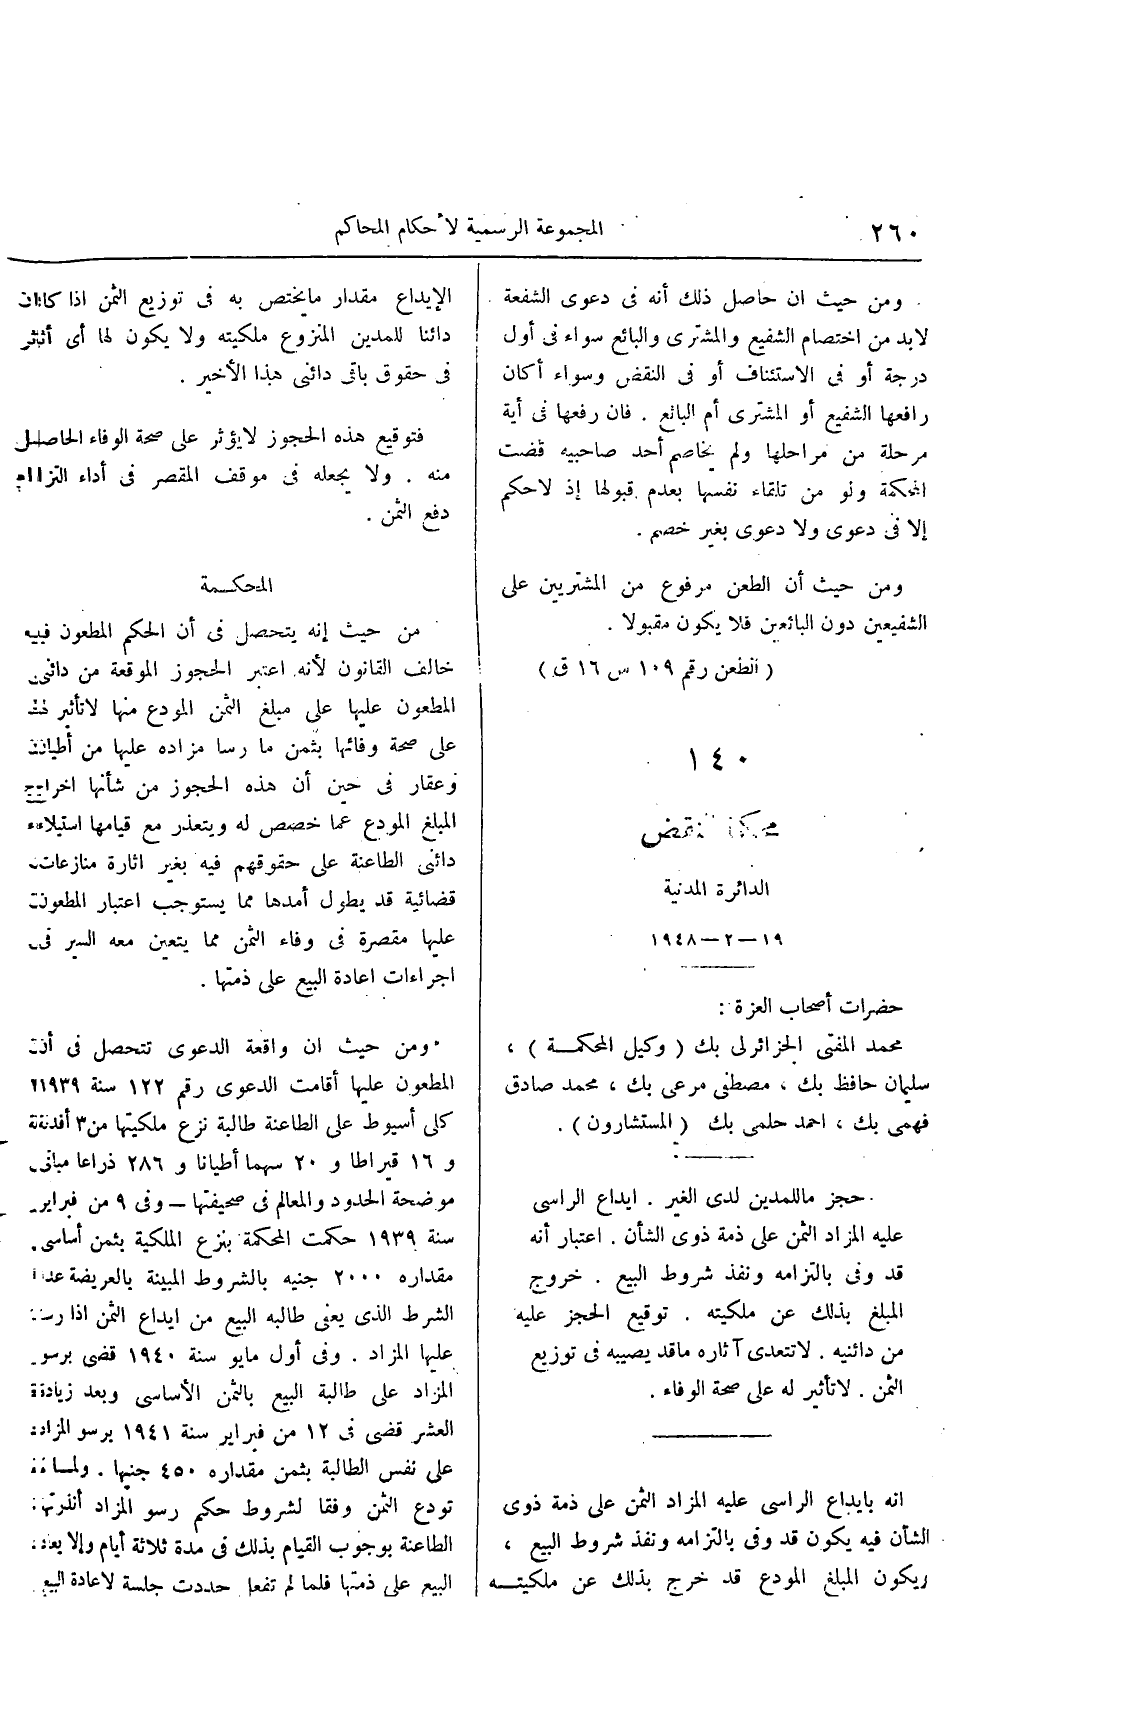 ٢٦٠
المجموعة الرسمية لأحكام المحاكم
ومن حيث ان حاصل ذلك أنه فى دعوى الشفعة
لابد من اختصام الشفيع والمشترى والبائع سواء فى أول
درجة أو فى الاستئناف أو فى النقض وسواء أكان
رافعها الشفيع أو المشترى أم البائع . فان رفعها فى أية
مرحلة من مراحلها ولم يخاصم أحد صاحبيه قضت
المحكمة ولو من تلقاء نفسها بعدم قبولها إذ لاحكم
إلا فى دعوى ولا دعوى بغير خصم .
ومن حيث أن الطعن مرفوع من المشتريين على
الشفيعين دون البائعين فلا يكون مقبولا .
( الطعن رقم ١٠٩ س ١٦ ق )
١٤٠
محكمة النقض
الدائرة المدنية
١٩ — ٢ — ١٩٤٨
حضرات أصحاب العزة :
محمد المفتى الجزائرلى بك ( وكيل المحكمة ) ،
سليمان حافظ بك ، مصطفى مرعى بك ، محمد صادق
فهمى بك ، احمد حلمى بك ( المستشارون ) .
حجز ماللمدين لدى الغير . ايداع الراسى
عليه المزاد الثمن على ذمة ذوى الشأن . اعتبار أنه
قد وفى بالتزامه ونفذ شروط البيع . خروج
المبلغ بذلك عن ملكيته . توقيع الحجز عليه
من دائنيه . لاتتعدى آثاره ماقد يصيبه فى توزيع
الثمن . لاتأثير له على صحة الوفاء .
انه بايداع الراسى عليه المزاد الثمن على ذمة ذوى
الشأن فيه يكون قد وفى بالتزامه ونفذ شروط البيع ،
ويكون المبلغ المودع قد خرج بذلك عن ملكيتـــه
الإيداع مقدار مايختص به فى توزيع الثمن اذا كان
دائنا للمدين المنزوع ملكيته ولا يكون لها أى أثر
فى حقوق باقى دائنى هذا الأخير .
فتوقيع هذه الحجوز لايؤثر على صحة الوفاء الحاصل
منه . ولا يجعله فى موقف المقصر فى أداء التزام
دفع الثمن .
المحكـمة
من حيث إنه يتحصل فى أن الحكم المطعون فيه
خالف القانون لأنه اعتبر الحجوز الموقعة من دائنى
المطعون عليها على مبلغ الثمن المودع منها لاتأثير له
على صحة وفائها بثمن ما رسا مزاده عليها من أطيان
وعقار فى حين أن هذه الحجوز من شأنها اخراج
المبلغ المودع عما خصص له ويتعذر مع قيامها استيلاء
دائنى الطاعنة على حقوقهم فيه بغير اثارة منازعات
قضائية قد يطول أمدها مما يستوجب اعتبار المطعون
عليها مقصرة فى وفاء الثمن مما يتعين معه السير فى
اجراءات اعادة البيع على ذمتها .
ومن حيث ان واقعة الدعوى تتحصل فى أن
المطعون عليها أقامت الدعوى رقم ١٢٢ سنة ١٩٣٩
كلى أسيوط على الطاعنة طالبة نزع ملكيتها من ٣ أفدنة
و ١٦ قيراطا و ٢٠ سهما أطيانا و ٢٨٦ ذراعا مبانى
موضحة الحدود والمعالم فى صحيفتها — وفى ٩ من فبراير
سنة ١٩٣٩ حكمت المحكمة بنزع الملكية بثمن أساسى
مقداره ٢٠٠٠ جنيه بالشروط المبينة بالعريضة عدا
الشرط الذى يعفى طالبه البيع من ايداع الثمن اذا رسا
عليها المزاد . وفى أول مايو سنة ١٩٤٠ قضى برسو
المزاد على طالبة البيع بالثمن الأساسى وبعد زيادة
العشر قضى فى ١٢ من فبراير سنة ١٩٤١ برسو المزاد
على نفس الطالبة بثمن مقداره ٤٥٠ جنيها . ولما
تودع الثمن وفقا لشروط حكم رسو المزاد أنذرتها
الطاعنة بوجوب القيام بذلك فى مدة ثلاثة أيام وإلا يعاد
البيع على ذمتها فلما لم تفعل حددت جلسة لاعادة البيع